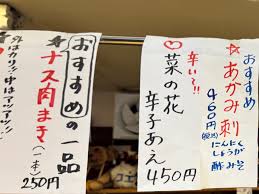 ☆あかみ刺
460円(税込)
にんにく
しょうが
酢みそ
辛いっ!!
♡菜の花
辛子あえ
450円
おすすめの一品
ナス肉まき(一本)
250円
外はカリッ!中はアツアツ!!